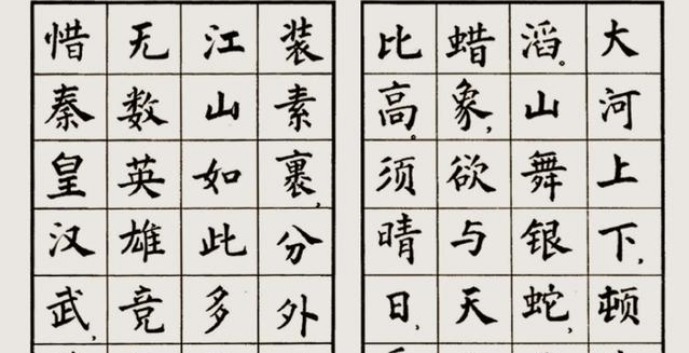 大河上下,顿
滔。山舞银蛇,
蜡象,欲与天
比高。须晴日,
装素裹,分外
江山如此多
无数英雄竞
惜秦皇汉武,